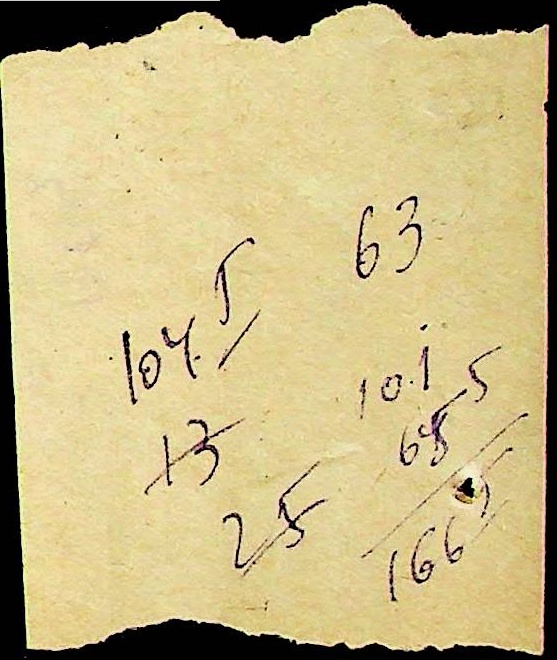 63
104.5
101
13
65 5
25
166 5